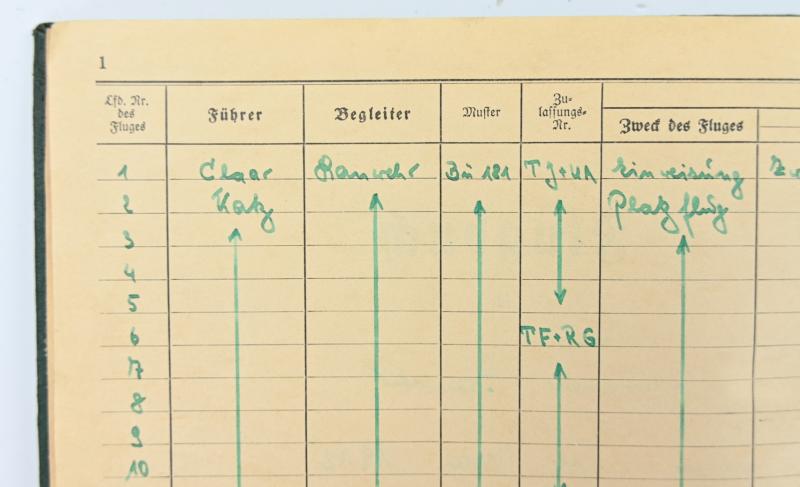 1
Lfd. Nr. des Fluges Führer Begleiter Muster Zulassungs-Nr. Zweck des Fluges
1 Claar Ranwehr Bü 181 TJ+UA Einweisung
2 Katz Platzflug
3
4
5
6 TF+RG
7
8
9
10